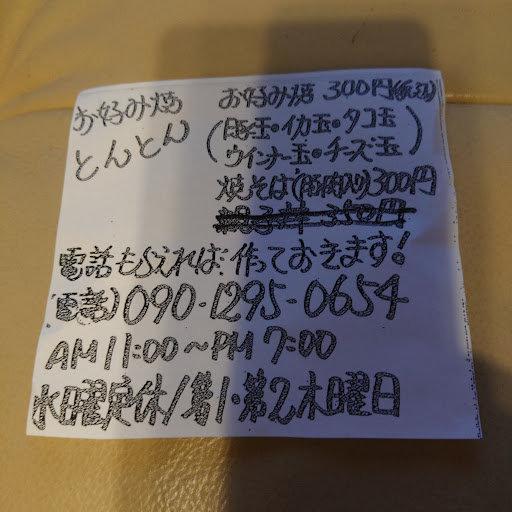 お好み焼
とんとん
お好み焼 300円(税込)
(豚玉・イカ玉・タコ玉
ウインナー玉・チーズ玉)
焼そば(豚肉入り)300円
親子丼 350円
電話もらえれば、作っておきます!
電話)090-1295-0654
AM11:00~PM7:00
水曜定休/第1・第2木曜日